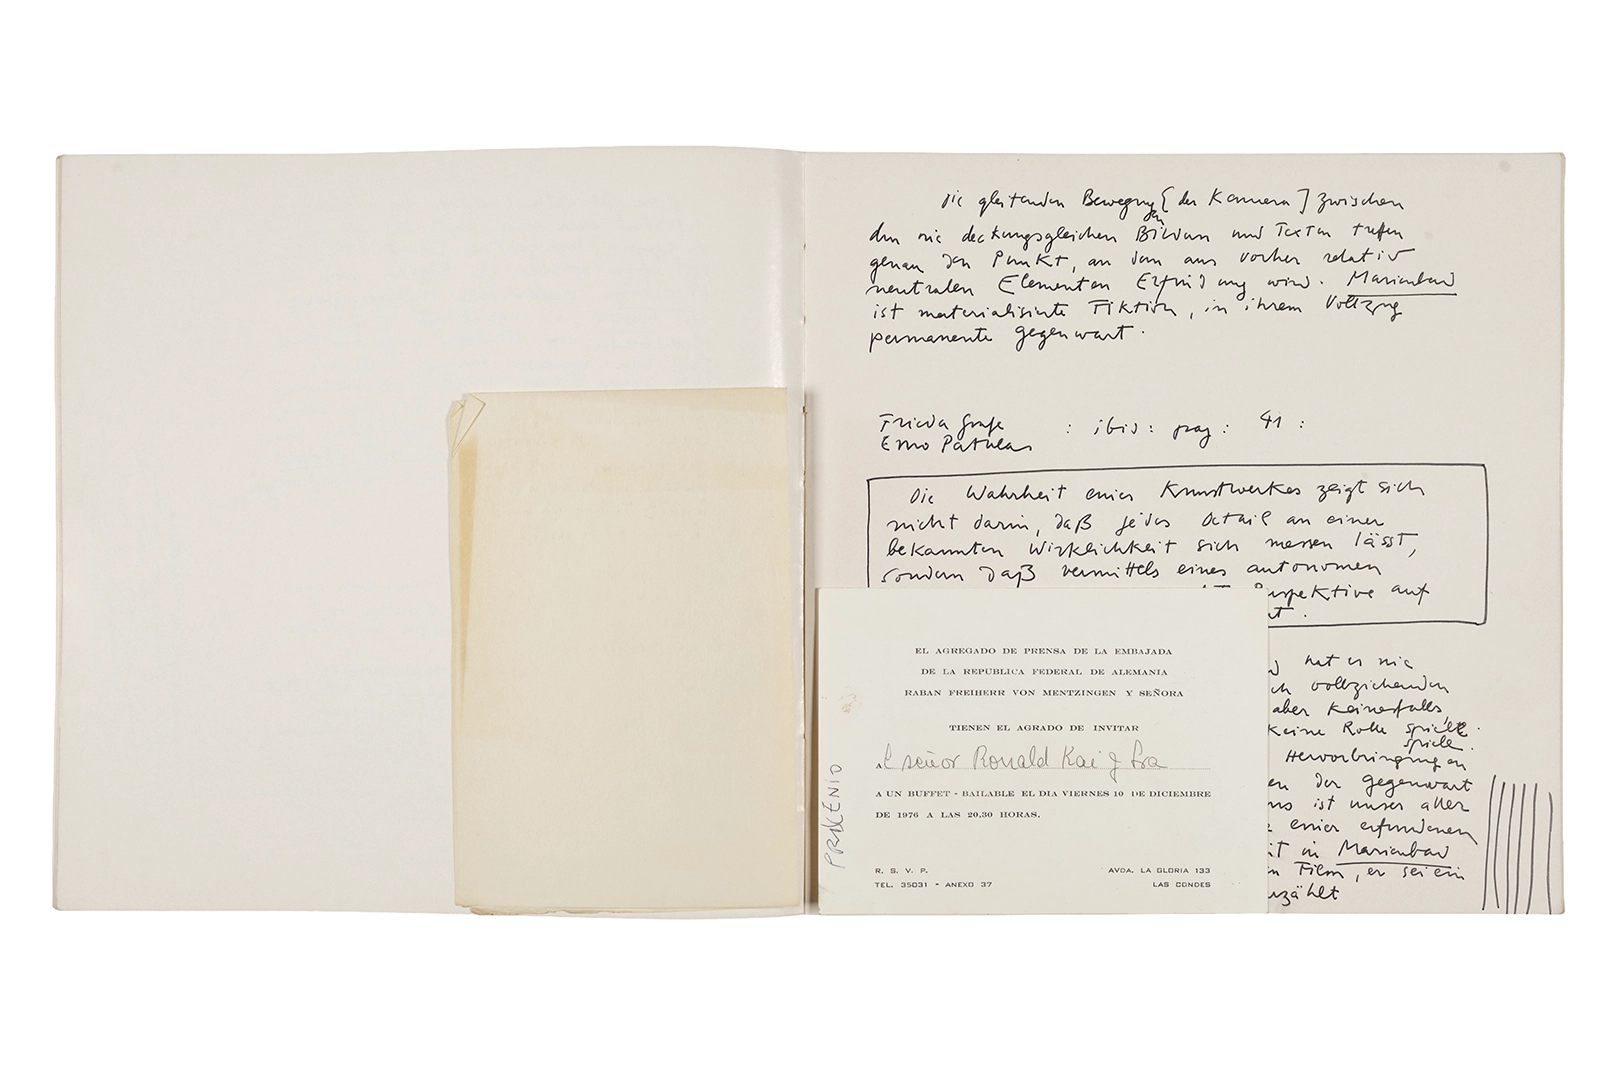 Die gleitenden Bewegungen [der Kamera] zwischen
den nie deckungsgleichen Bildern und Texten treffen
genau den Punkt, an dem aus vorher relativ
neutralen Elementen Erfindung wird. Marienbad
ist materialisierte Fiktion, in ihrem Vollzug
permanente Gegenwart.
Frieda Grafe : ibid: pag: 41:
Enno Patalas
Die Wahrheit eines Kunstwerkes zeigt sich
nicht darin, daß jedes Detail an einer
bekannten Wirklichkeit sich messen lässt,
sondern daß vermittels eines autonomen
Perspektive auf
hat er nie
vollziehenden
aber keinesfalls
keine Rolle spielte.
spiele.
Hervorbringungen
der Gegenwart
ist unser aller
einer erfundenen
in Marienbad
Film, er sei ein
EL AGREGADO DE PRENSA DE LA EMBAJADA
DE LA REPUBLICA FEDERAL DE ALEMANIA
RABAN FREIHERR VON MENTZINGEN Y SEÑORA
TIENEN EL AGRADO DE INVITAR
Al señor Ronald Kai y Sra
A UN BUFFET - BAILABLE EL DIA VIERNES 10 DE DICIEMBRE
DE 1976 A LAS 20,30 HORAS.
R. S. V. P.
TEL. 35031 - ANEXO 37
AVDA. LA GLORIA 133
LAS CONDES